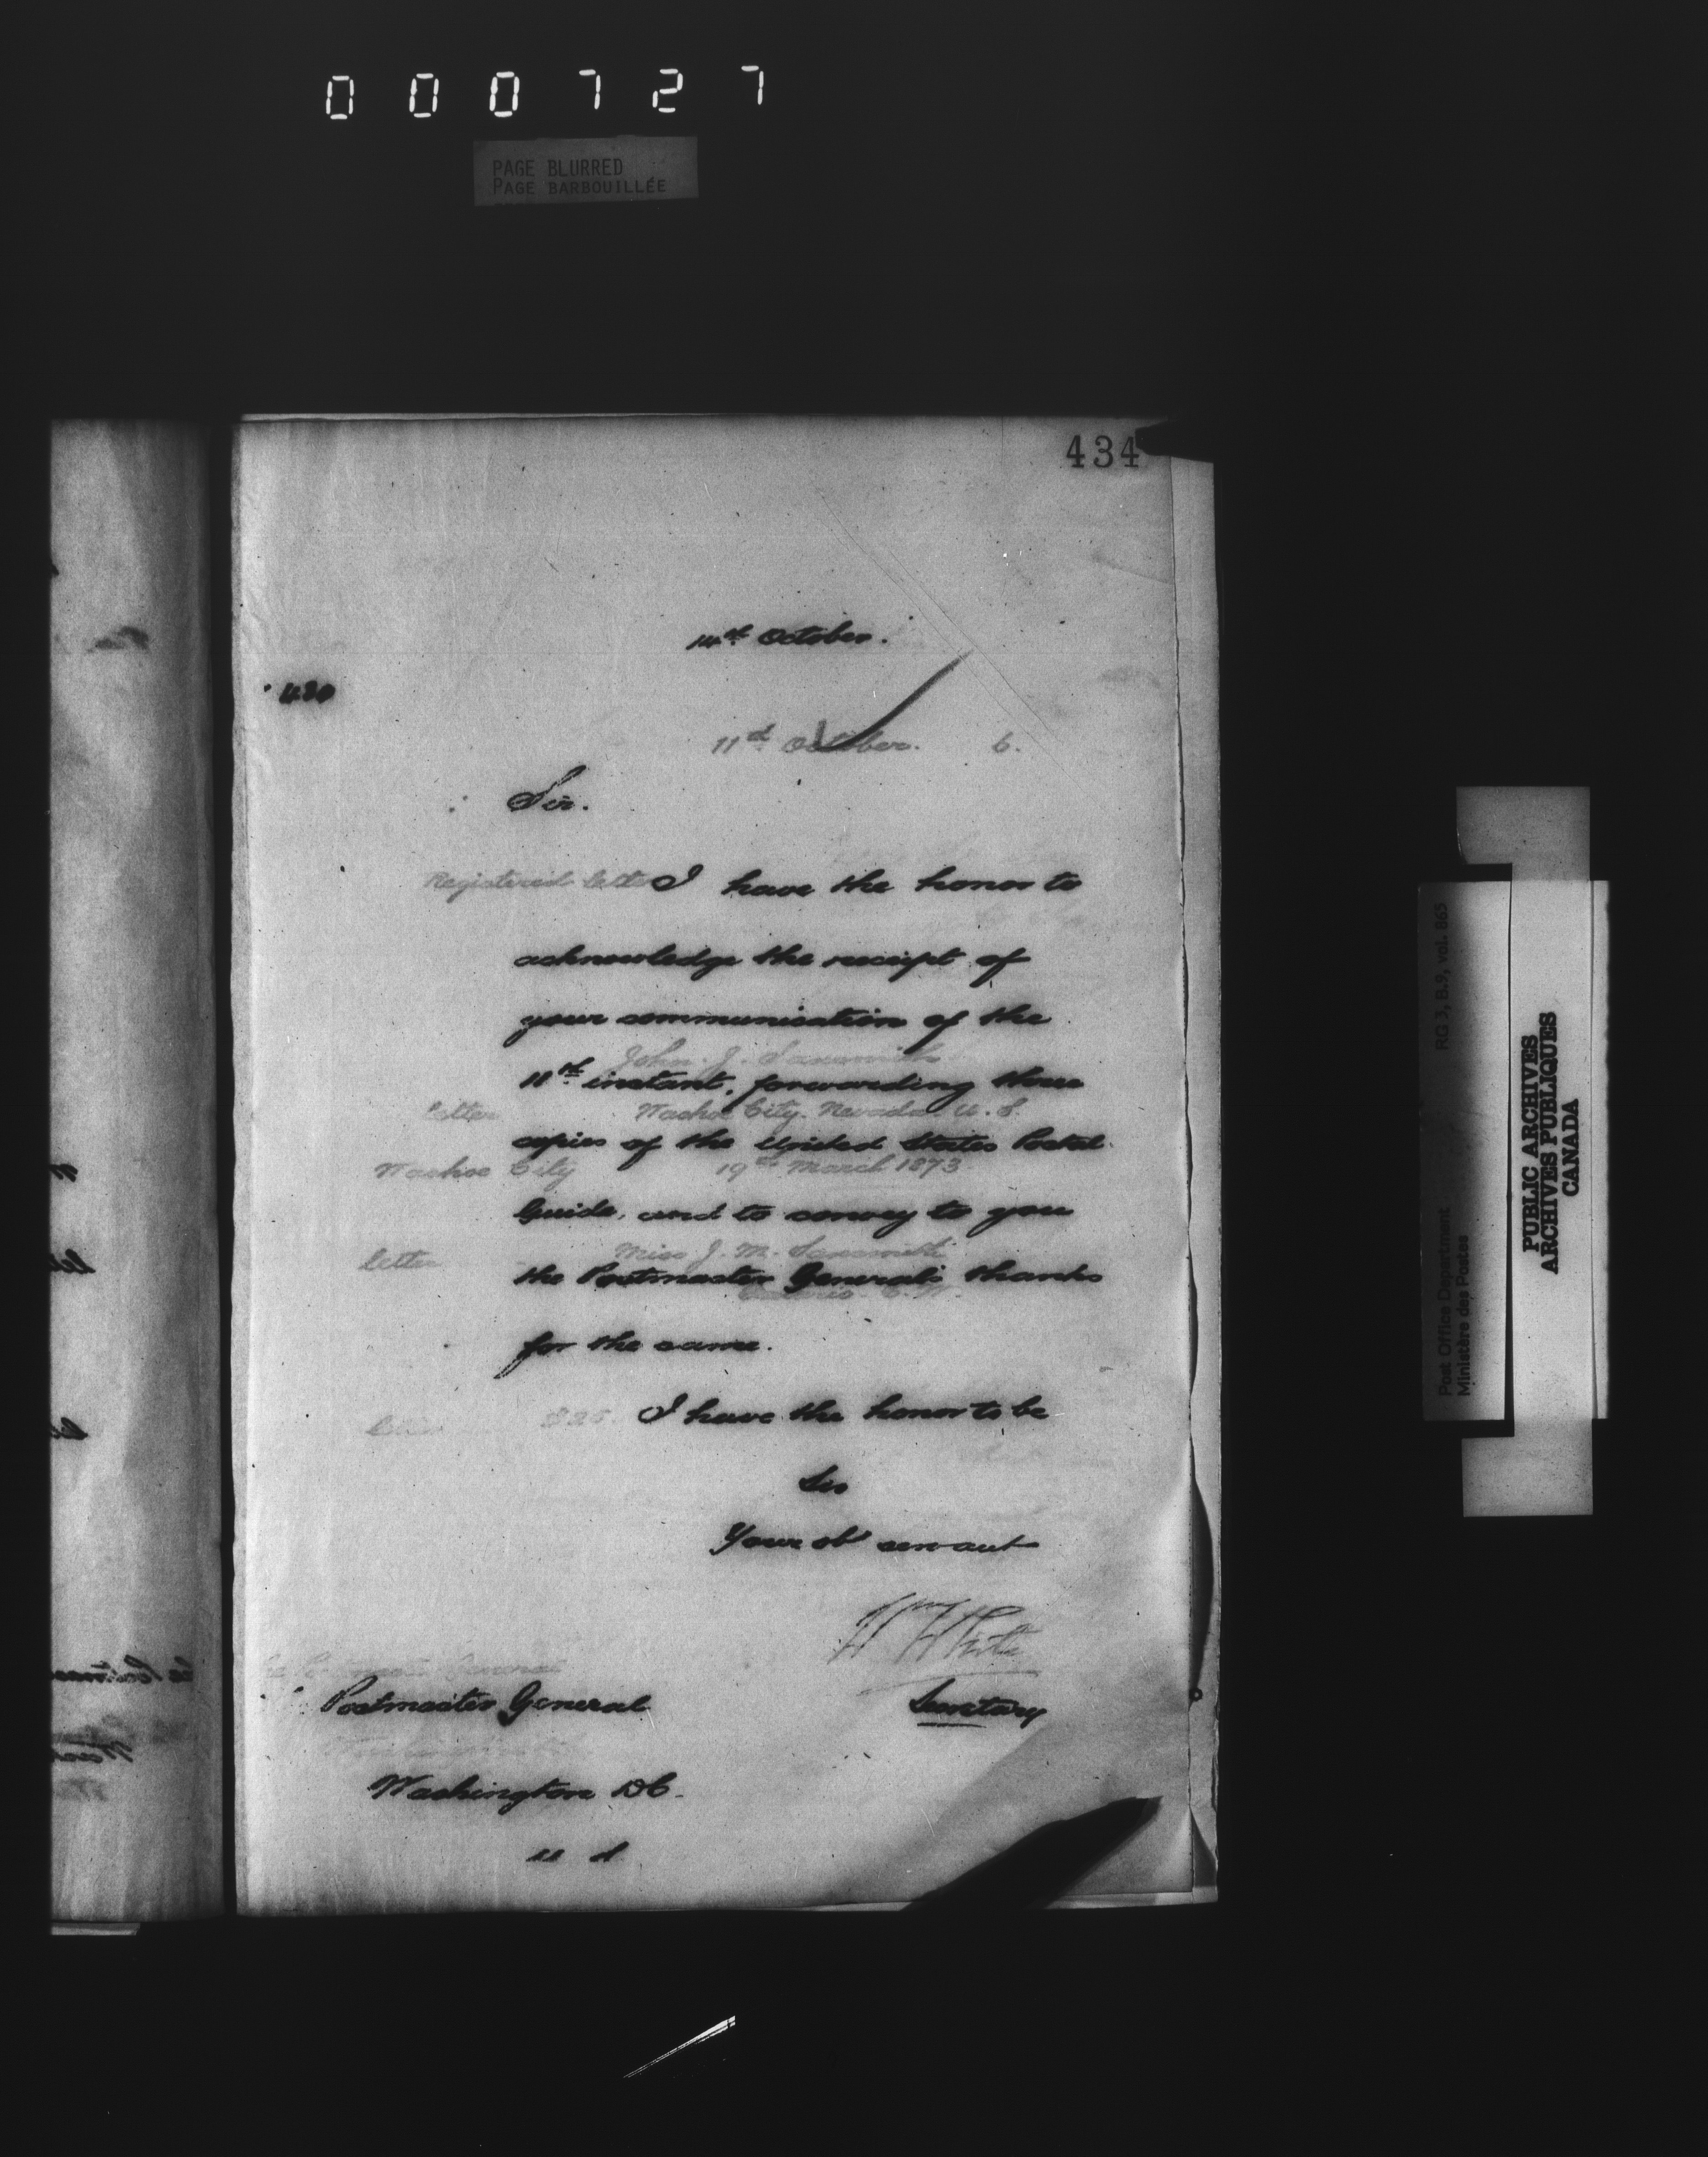 000727
PAGE BLURRED
PAGE BARBOUILLÉE
434
14th October.
430
11th October. 6.
Sir.
Registered letter
I have the honor to
acknowledge the receipt of
your communication of the
John. J.
11th instant, forwarding three
letter Washoe City. Nevada. U.S.
copies of the United States Postal
Washoe City 19th March 1873.
Guide, and to convey to you
letter Miss J. M.
the Postmaster General's thanks
for the same.
I have the honor to be
Sir
Your obt servant
Wm White
Postmaster General
Secretary
Washington DC.
U S
RG 3, B.9, vol. 865
Post Office Department
Ministère des Postes
PUBLIC ARCHIVES
ARCHIVES PUBLIQUES
CANADA